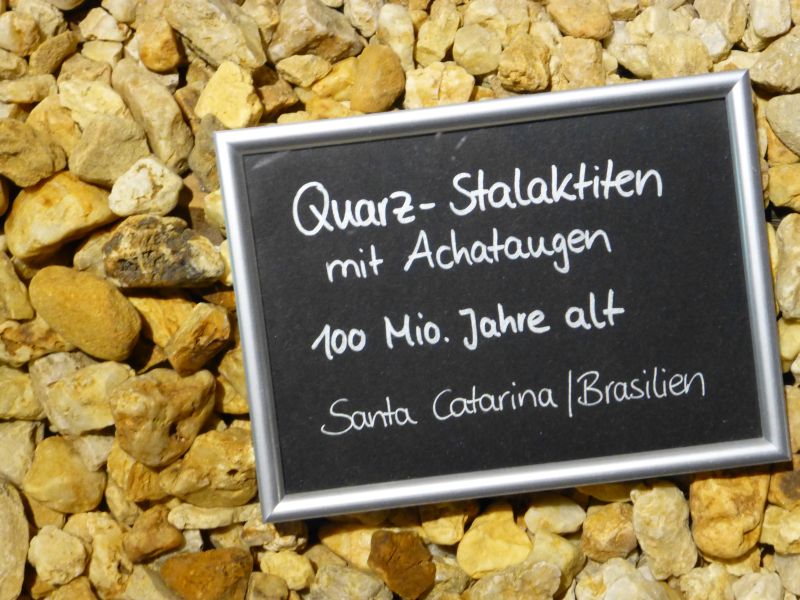 Quarz-Stalaktiten
mit Achataugen
100 Mio. Jahre alt
Santa Catarina/Brasilien